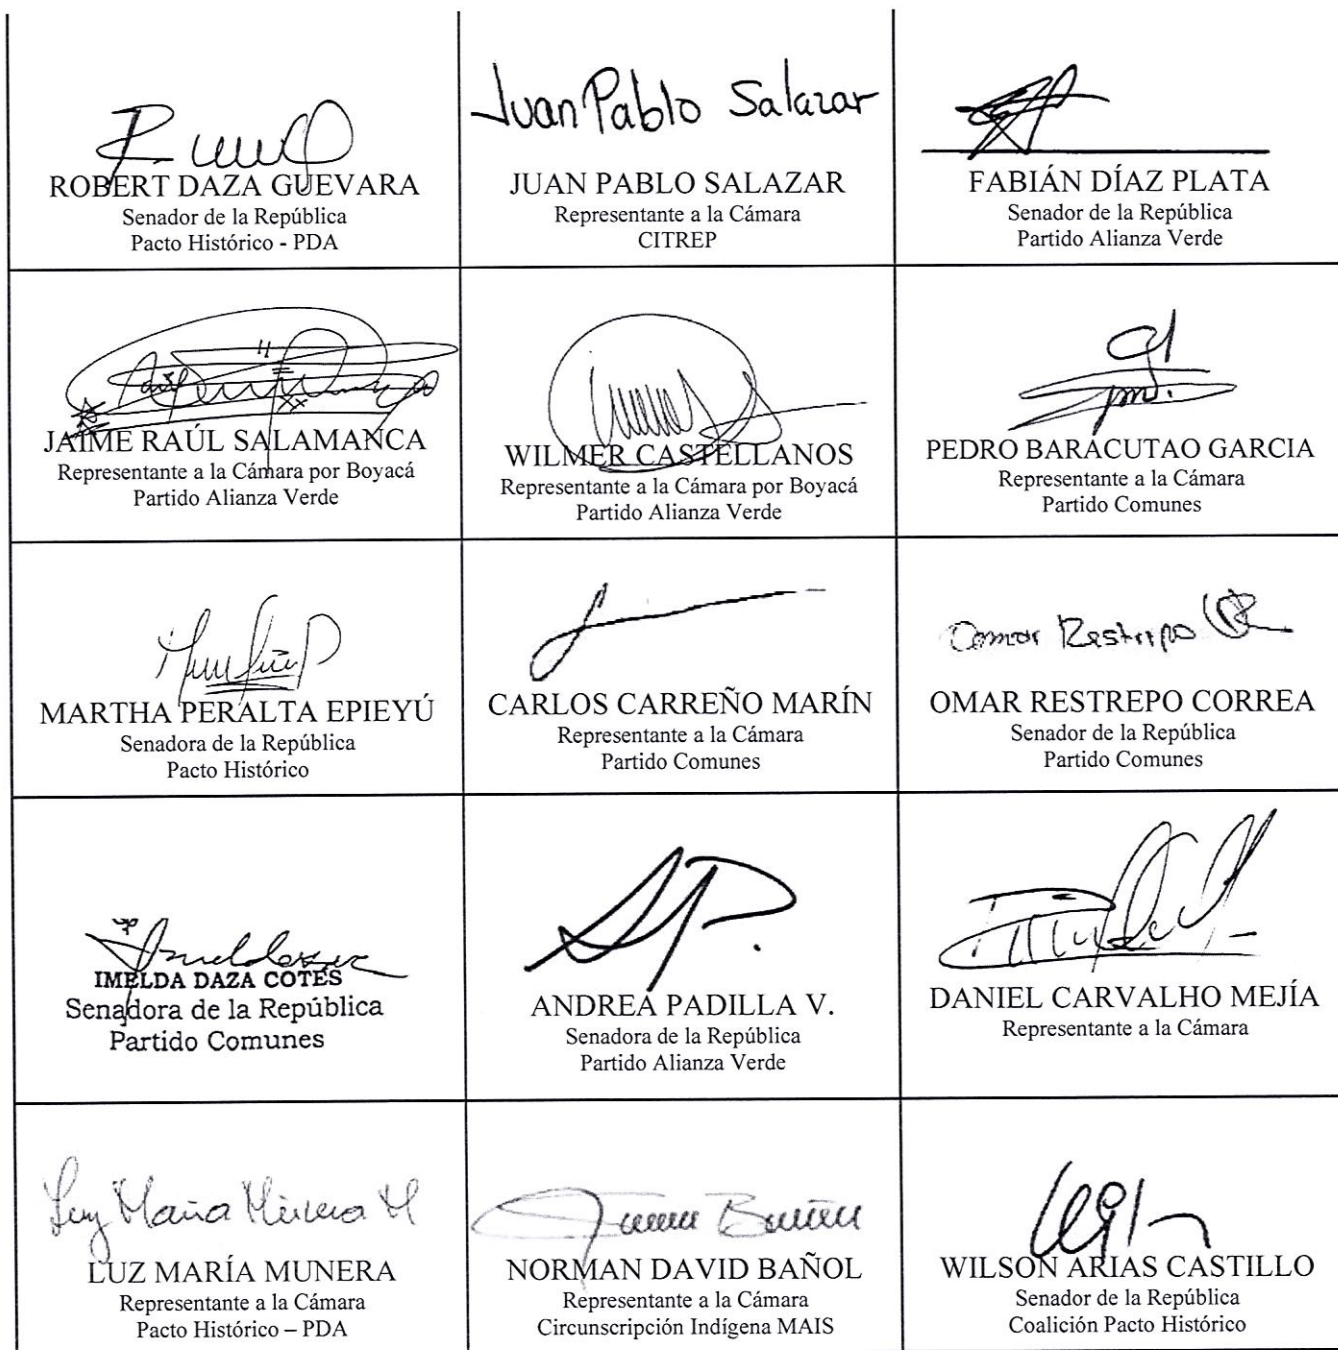 Juan Pablo Salazar
ROBERT DAZA GUEVARA
Senador de la República
Pacto Histórico - PDA
JUAN PABLO SALAZAR
Representante a la Cámara
CITREP
FABIÁN DÍAZ PLATA
Senador de la República
Partido Alianza Verde
JAIME RAÚL SALAMANCA
Representante a la Cámara por Boyacá
Partido Alianza Verde
WILMER CASTELLANOS
Representante a la Cámara por Boyacá
Partido Alianza Verde
PEDRO BARACUTAO GARCIA
Representante a la Cámara
Partido Comunes
MARTHA PERALTA EPIEYÚ
Senadora de la República
Pacto Histórico
CARLOS CARREÑO MARÍN
Representante a la Cámara
Partido Comunes
Omar Restrepo
OMAR RESTREPO CORREA
Senador de la República
Partido Comunes
IMELDA DAZA COTES
Senadora de la República
Partido Comunes
ANDREA PADILLA V.
Senadora de la República
Partido Alianza Verde
DANIEL CARVALHO MEJÍA
Representante a la Cámara
Luz María Múnera M
LUZ MARÍA MUNERA
Representante a la Cámara
Pacto Histórico – PDA
NORMAN DAVID BAÑOL
Representante a la Cámara
Circunscripción Indígena MAIS
WILSON ARIAS CASTILLO
Senador de la República
Coalición Pacto Histórico